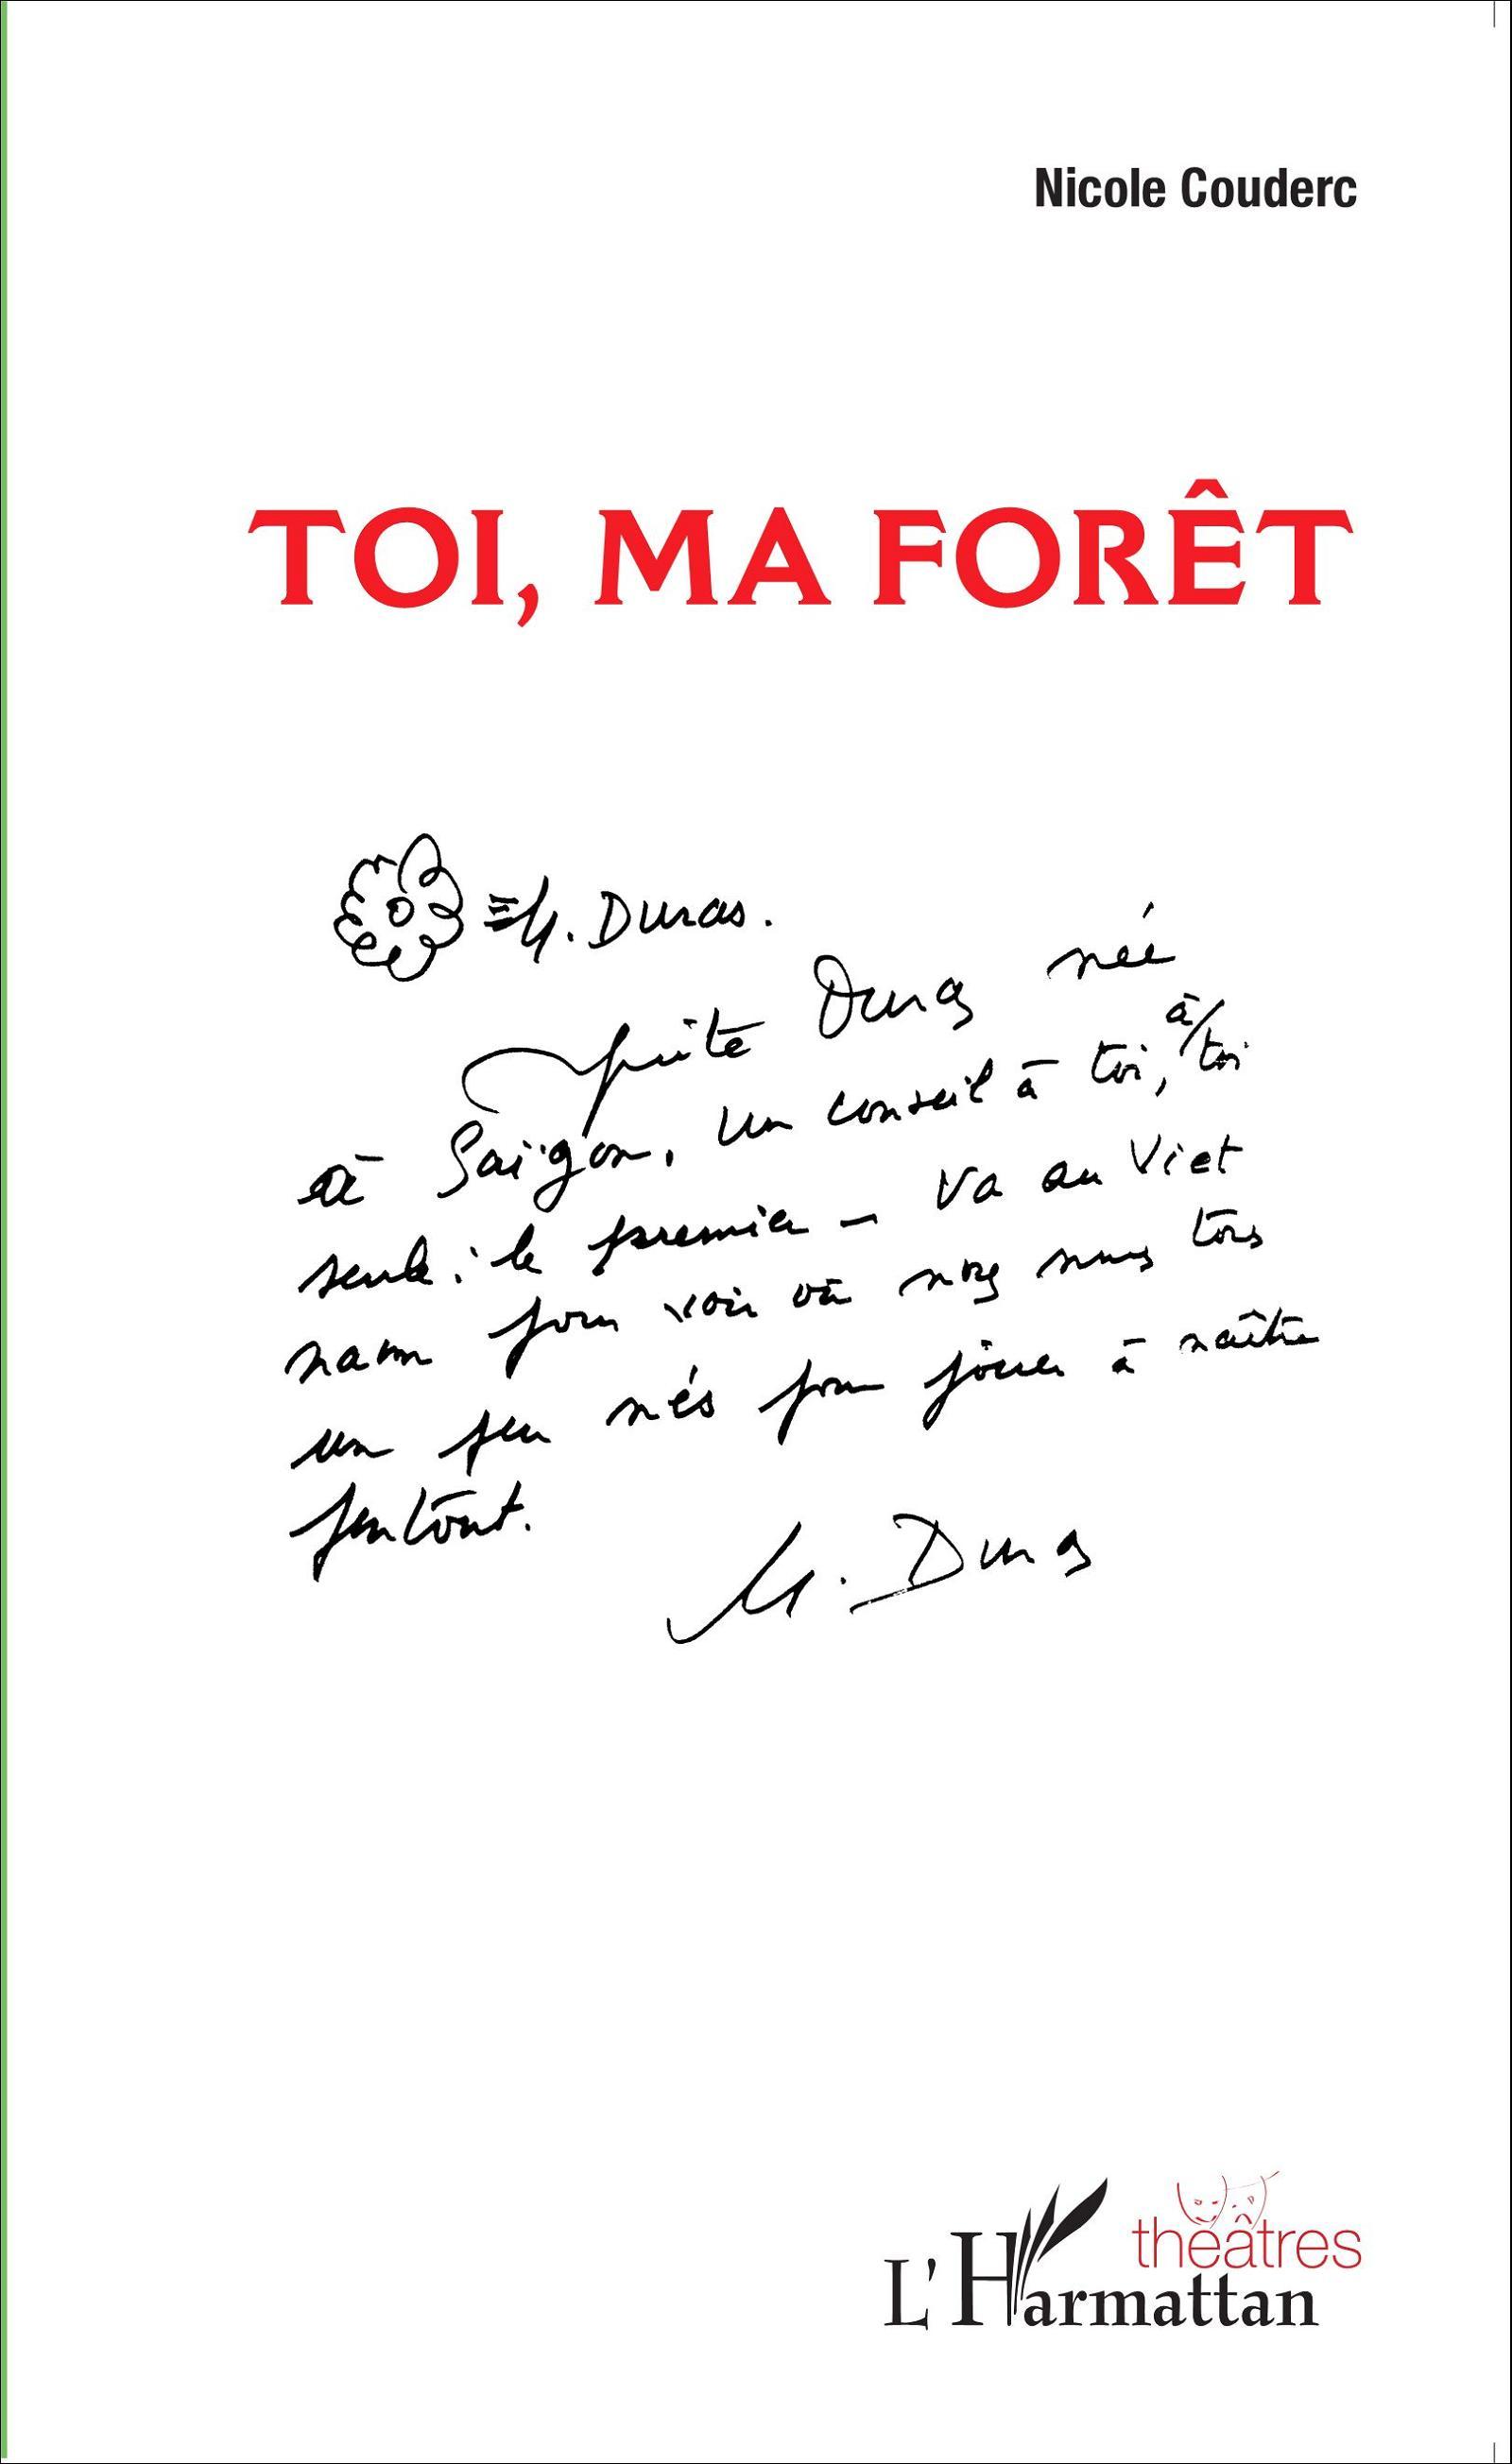 Nicole Couderc
TOI, MA FORÊT
M. Duras.
Duras née
à Saïgon. Un conseil à toi, à toi
seule : le premier – va au Viet
nam pour voir où nous tous
un peu nés pour jouer à naître
partout.
M. Duras
théâtres
L'Harmattan